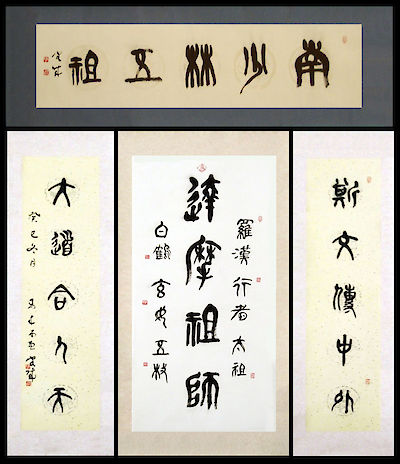 南少林五祖
斯文傳中外
羅漢行者太祖
達摩祖師
白鶴玄女五枚
大道合人天
癸巳冬月